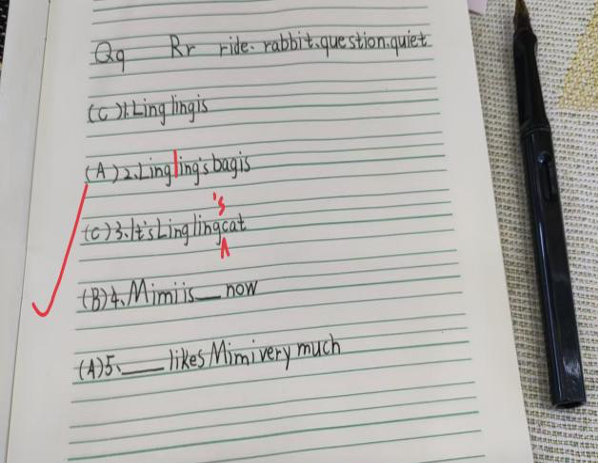 Qq Rr ride. rabbit. question. quiet
(C)1. Ling lingis
(A)2. Lingling's bagis
's
(C)3. It's Ling lingcat
(B)4. Mimi is __ now
(A)5. ___ likes Mimi very much